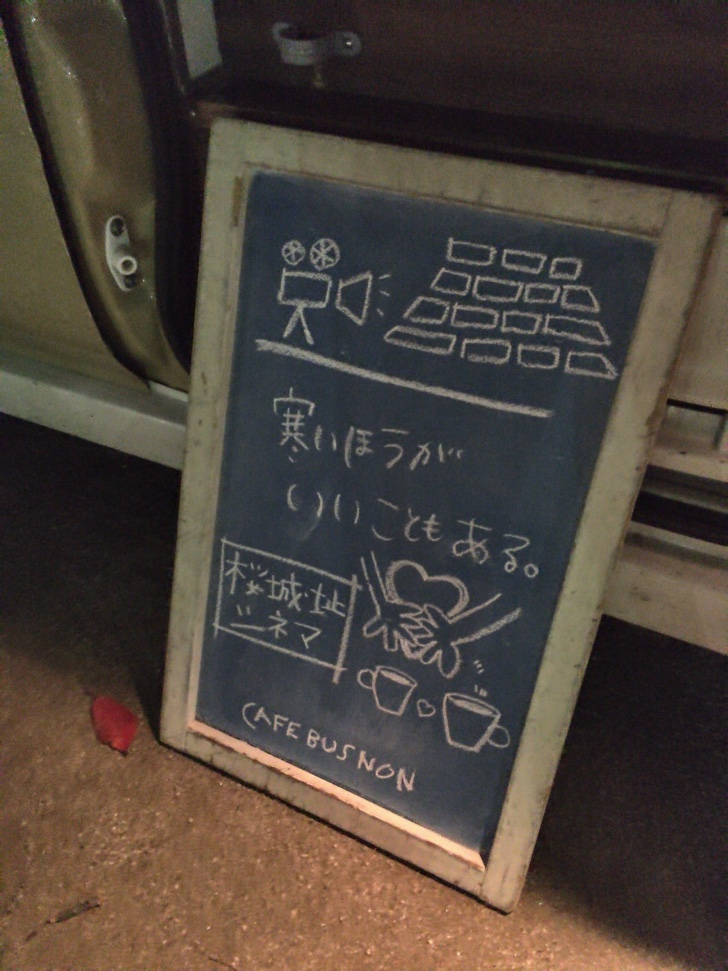 寒いほうが
いいこともある。
桜城址
シネマ
CAFE BUS NON